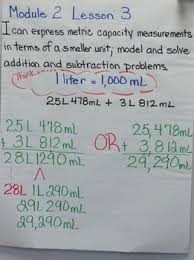 Module 2 Lesson 3
I can express metric capacity measurements
in terms of a smaller unit; model and solve
addition and subtraction problems.
Think...
1 liter = 1,000 mL
25L 478mL + 3L 812mL
25L 478mL
+ 3L 812mL
28L 1290mL
28L 1L 290mL
29L 290mL
29,290mL
OR
25,478mL
+ 3,812mL
29,290mL